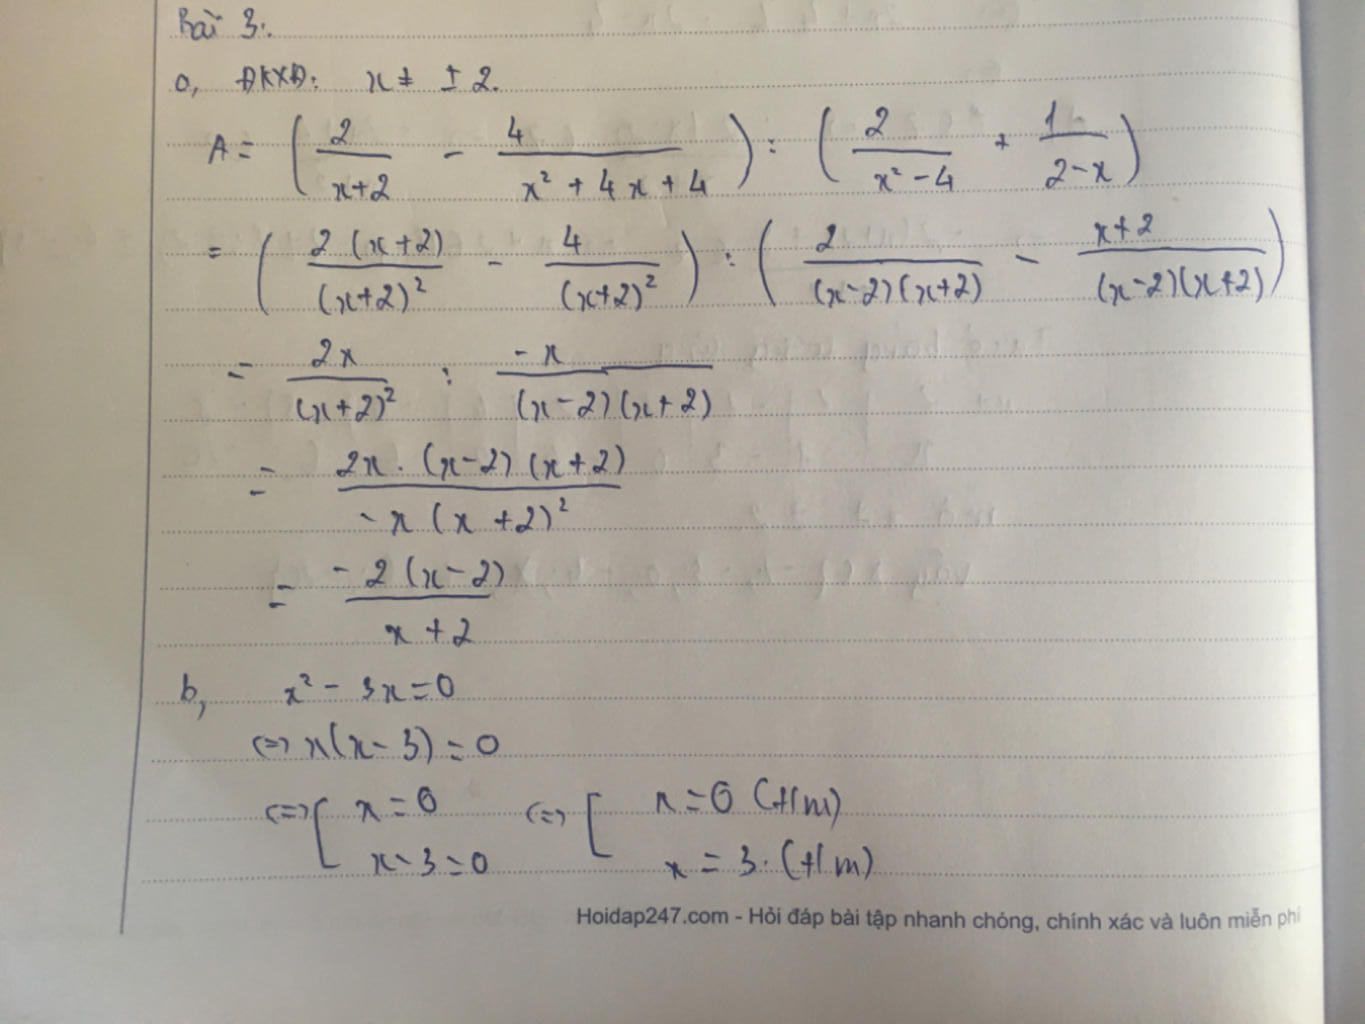 Bài 3:
a, ĐKXĐ: x ≠ ± 2.
A = ( 2/(x+2) - 4/(x² + 4x + 4) ) : ( 2/(x² - 4) + 1/(2-x) )
= ( 2(x+2)/(x+2)² - 4/(x+2)² ) : ( 2/((x-2)(x+2)) - (x+2)/((x-2)(x+2)) )
= 2x/(x+2)² : -x/((x-2)(x+2))
= 2x.(x-2)(x+2)/(-x(x+2)²)
= -2(x-2)/(x+2)
b, x² - 3x = 0
<=> x(x-3) = 0
<=> [ x = 0 <=> [ x = 0 (t/m)
x - 3 = 0 x = 3. (t/m)
Hoidap247.com - Hỏi đáp bài tập nhanh chóng, chính xác và luôn miễn phí